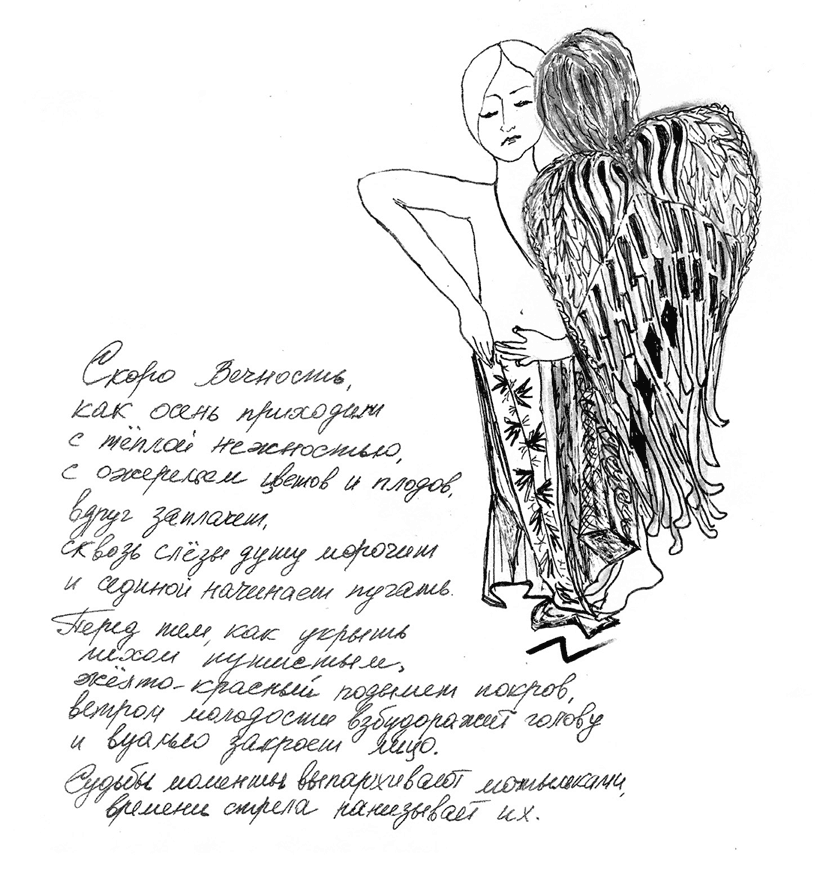 Скоро Вечность,
как осень приходит
с тёплой нежностью,
с ожерельем цветов и плодов,
вдруг заплачет,
сквозь слёзы душу морочит
и сединой начинает пугать.
Перед тем, как укрыть
мехом пушистым,
жёлто-красный поднимет покров,
ветром молодости взбудоражит голову
и вуалью закроет лицо.
Судьбы моменты выпархивают мотыльками,
времени стрела нанизывает их.